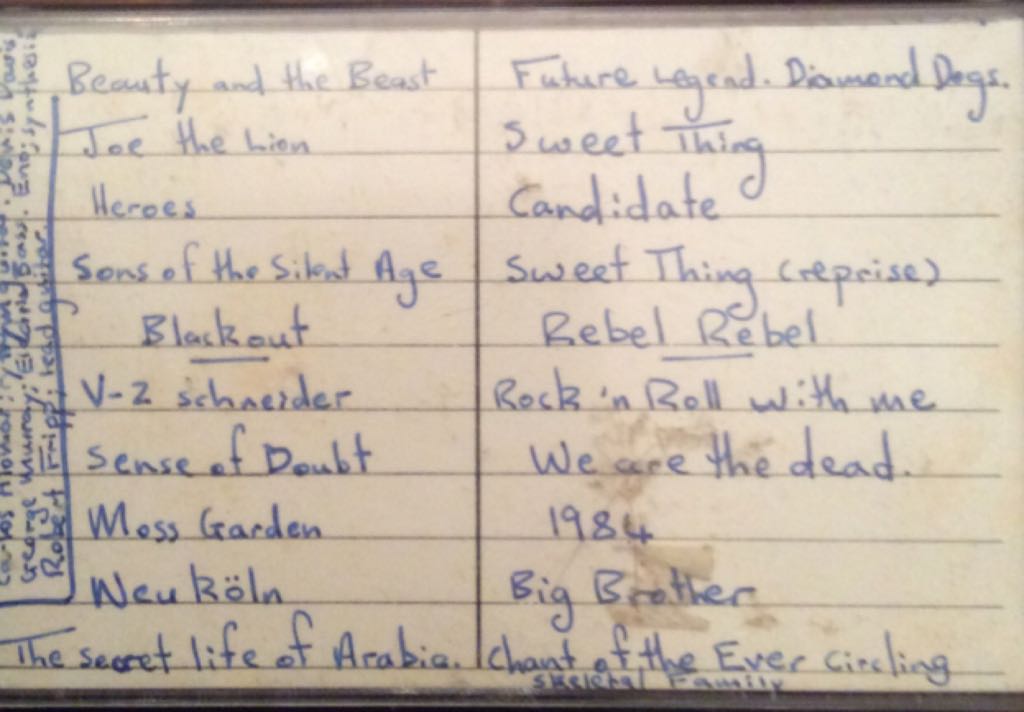 Beauty and the Beast
Joe the Lion
Heroes
Sons of the Silent Age
Blackout
V-2 schneider
Sense of Doubt
Moss Garden
Neuköln
The secret life of Arabia.
Future Legend. Diamond Dogs.
Sweet Thing
Candidate
Sweet Thing (reprise)
Rebel Rebel
Rock 'n Roll with me
We are the dead.
1984
Big Brother
Chant of the Ever Circling
Skeletal Family
Alomar; Dennis Davis
George Murray; Bass. Eno; synthesis
Robert Fripp; lead guitar.